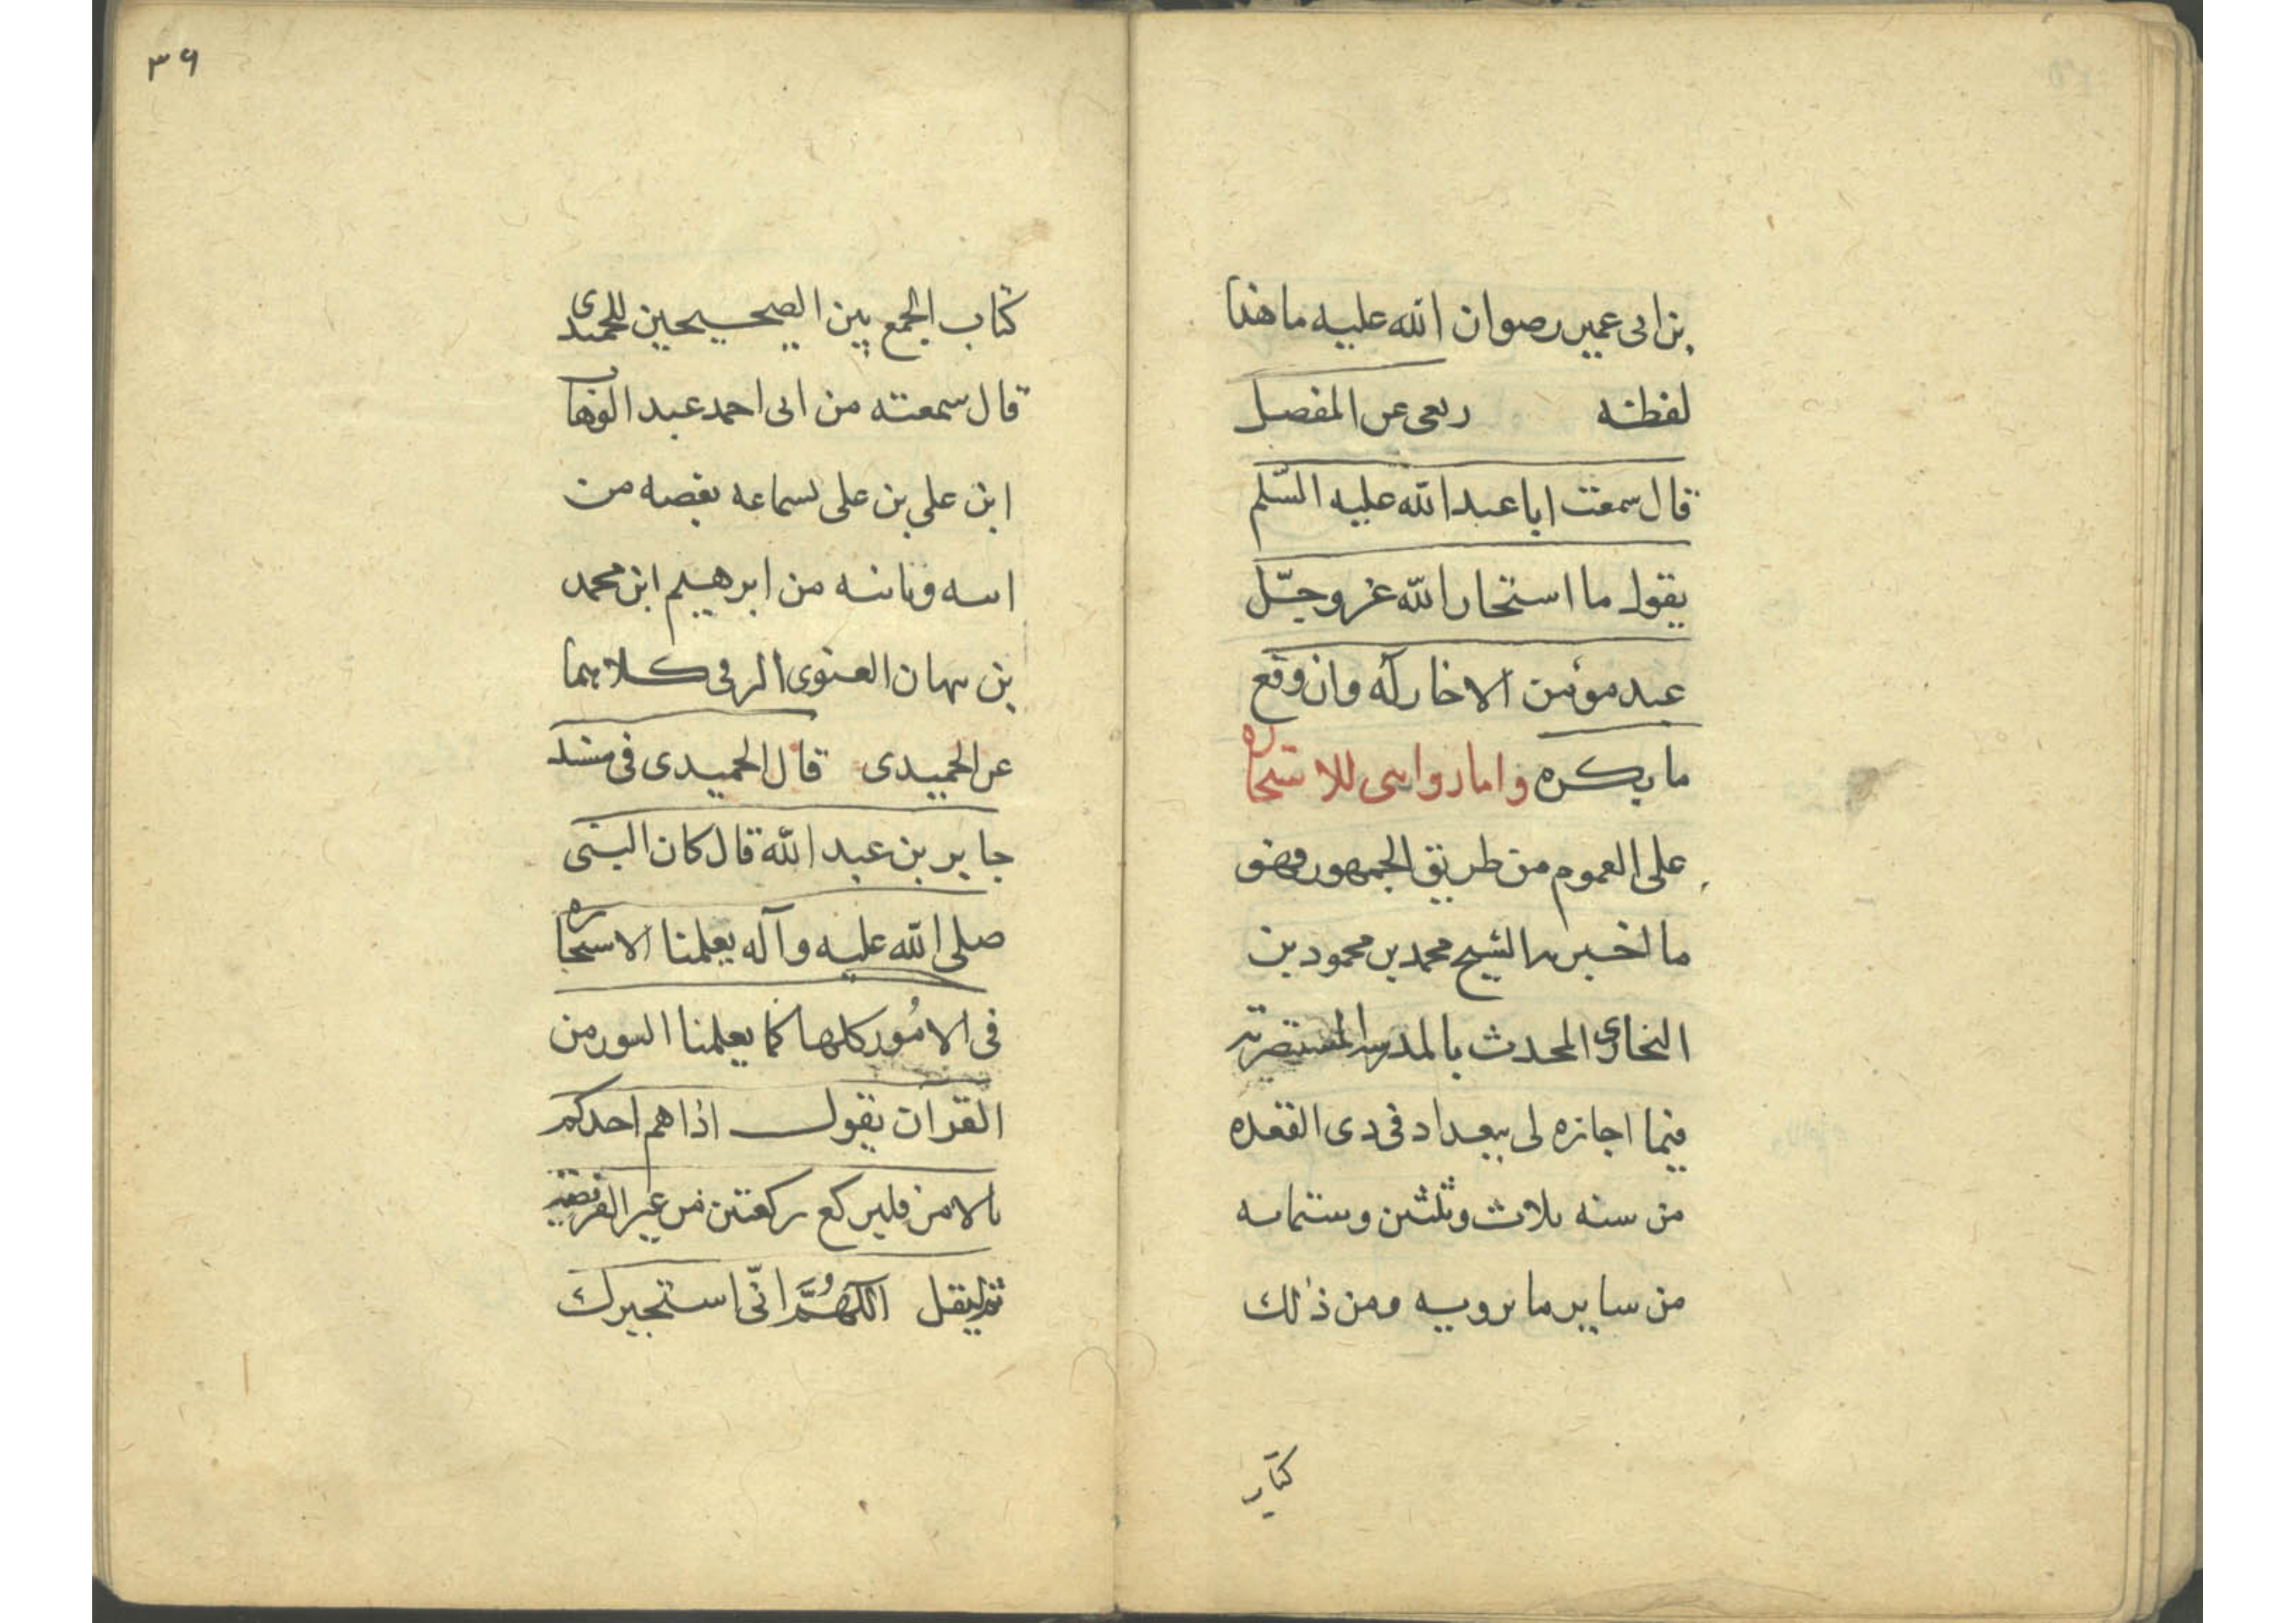 بن ابی عمیر رضوان الله علیه ما هذا
لفظه ربعی عن المفضل
قال سمعت ابا عبد الله علیه السّلم
یقول ما استخار الله عز وجلّ
عبد مؤمن الا خار له وان وقع
ما یکره واما روایتی للاستخاره
علی العموم من طریق الجمهور فهو
ما اخبرنا الشیخ محمد بن محمود بن
النجاری المحدث بالمدرسه المستنصریه
فیما اجازه لی ببغداد فی ذی القعده
من سنه ثلاث وثلثین وستمایه
من سایر ما یرویه ومن ذلک
کتاب
۳۶
کتاب الجمع بین الصحیحین للحمیدی
قال سمعته من ابی احمد عبد الوهاب
ابن علی بن علی بسماعه بعضه من
ابیه وباقیه من ابرهیم ابن محمد
بن نبهان الغنوی الرقی کلاهما
عن الحمیدی قال الحمیدی فی مسند
جابر بن عبد الله قال کان النبی
صلی الله علیه وآله یعلمنا الاستخاره
فی الامُور کلها کما یعلمنا السور من
القرآن یقول اذا هم احدکم
بالامر فلیرکع رکعتین من غیر الفریضه
ثم لیقل اللّٰهُمَّ انّی استخیرک